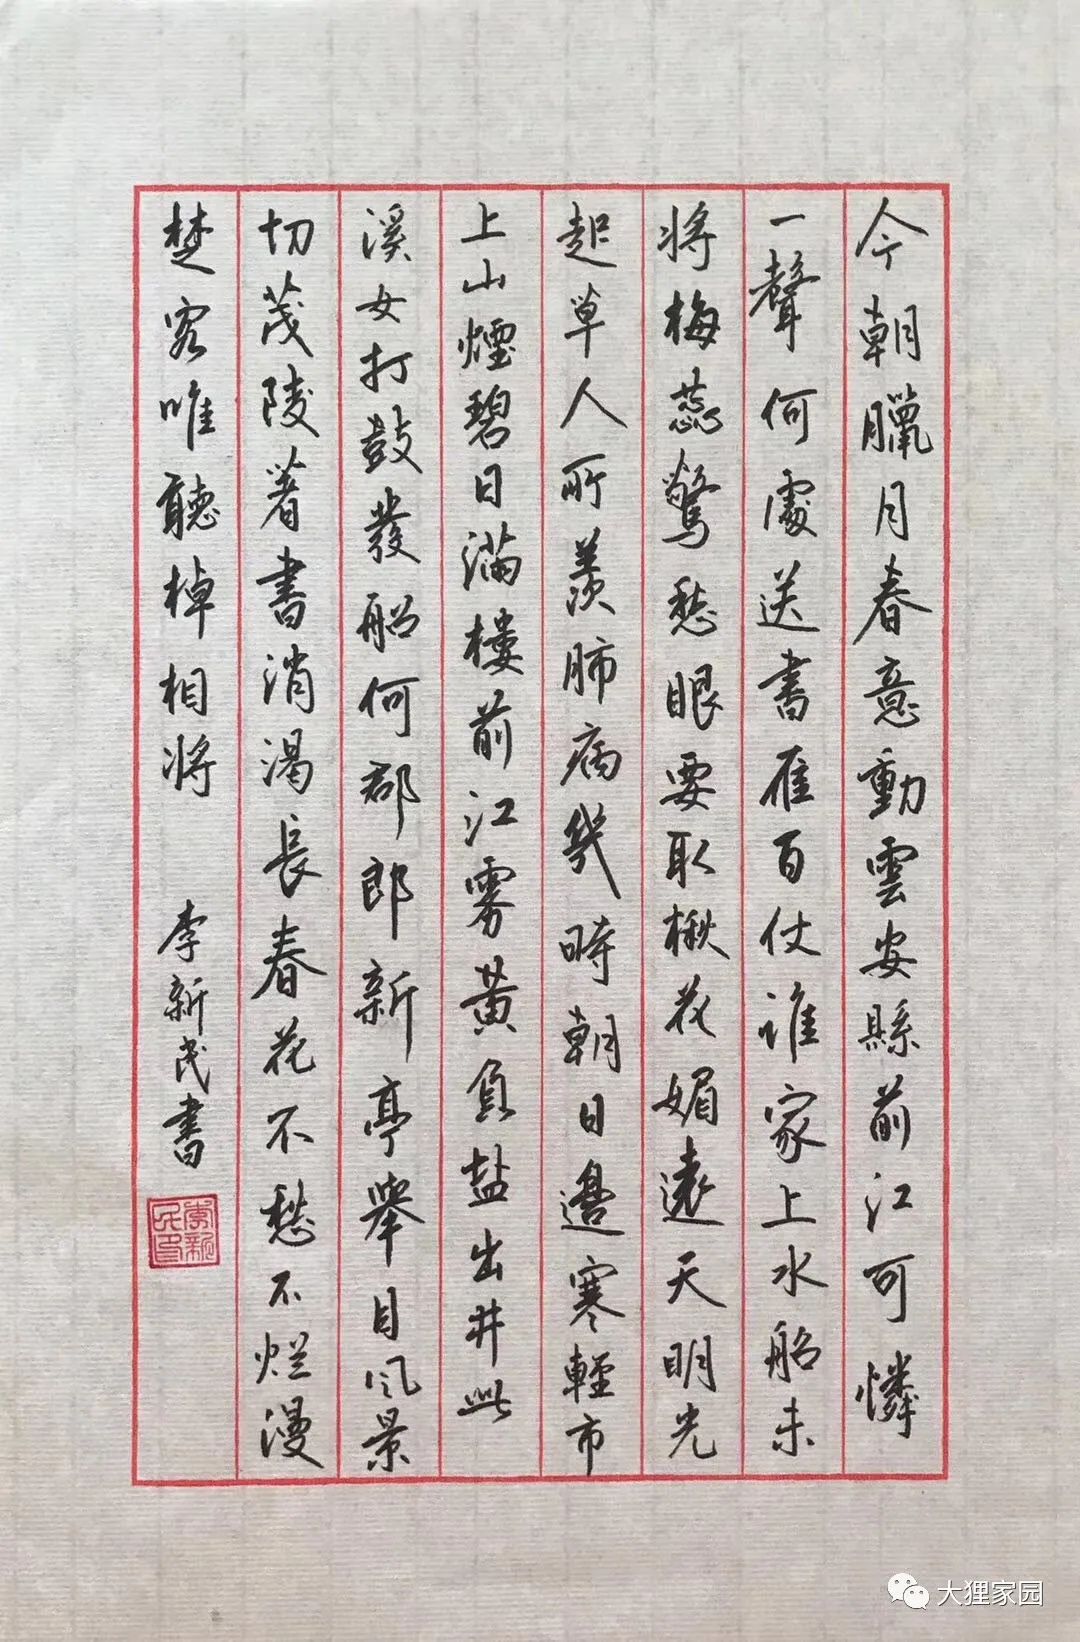 今朝臘月春意動雲安縣前江可憐
一聲何處送書雁百仗誰家上水船未
將梅蕊驚愁眼要取楸花媚遠天明光
起草人所羨肺病幾時朝日邊寒輕市
上山煙碧日滿樓前江霧黃負盐出井此
溪女打鼓發船何郡郎新亭舉目風景
切茂陵著書消渴長春花不愁不烂漫
楚客唯聽棹相將 李新民書
李新民印
大狸家园